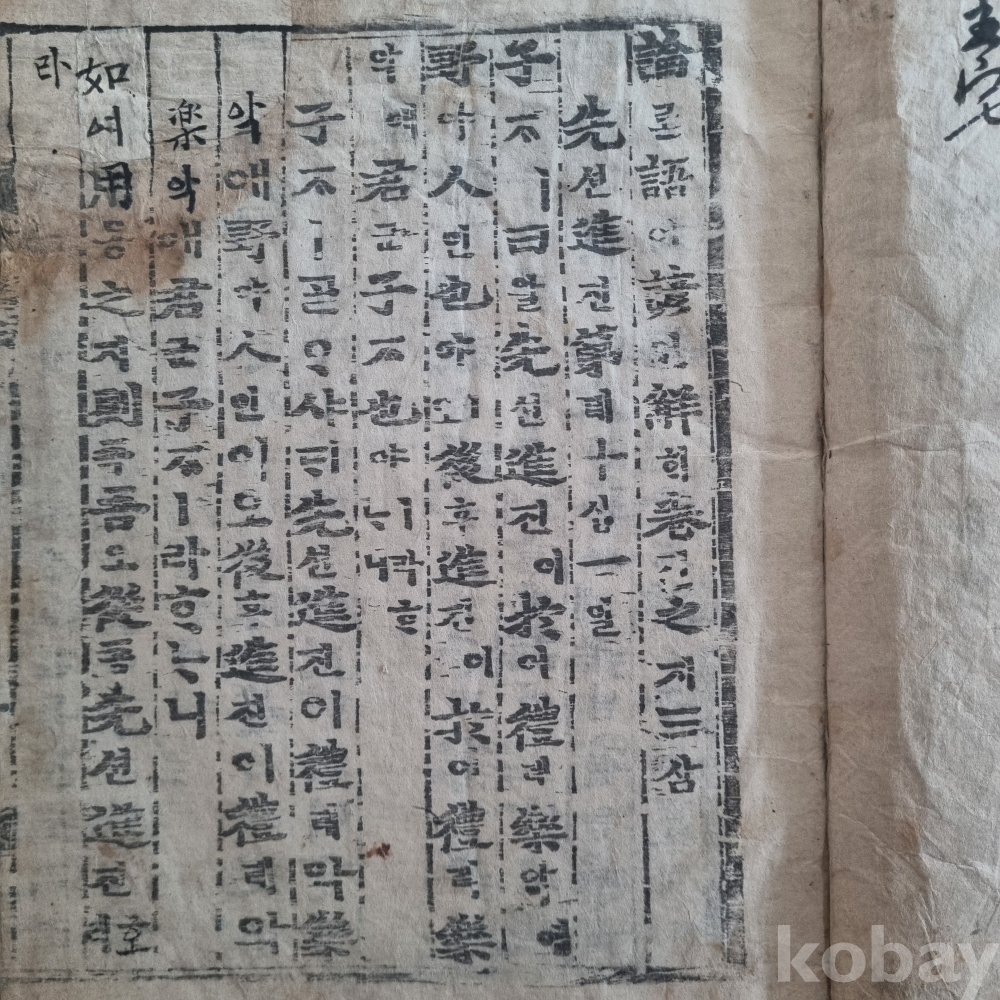 論론語어諺언解ᄒᆡ卷권之지三삼
先션進진第뎨十십一일
子ᄌᆞㅣ曰왈先션進진이於어禮례樂악애
野야人인也야ㅣ오後후進진이於어禮례樂
악애君군子ᄌᆞ也야ㅣ니
子ᄌᆞㅣᄀᆞᆯᄋᆞ샤ᄃᆡ先션進진이禮례막樂
악애野야人인이오後후進진이禮례악
楽악애君군子ᄌᆞㅣ라ᄒᆞᄂᆞ니
如여用용之지則즉吾오從종先션進진호리
라
kobay